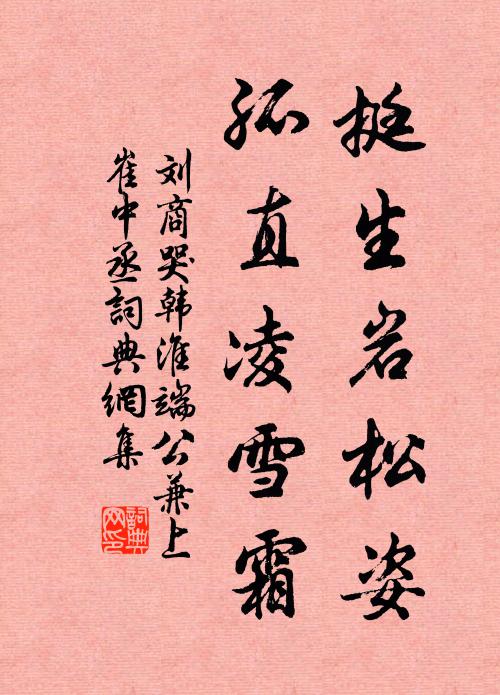 挺生岩松姿
孤直凌雪霜
刘商哭韩淮端公兼上
崔中丞詞典網集
詞典网印